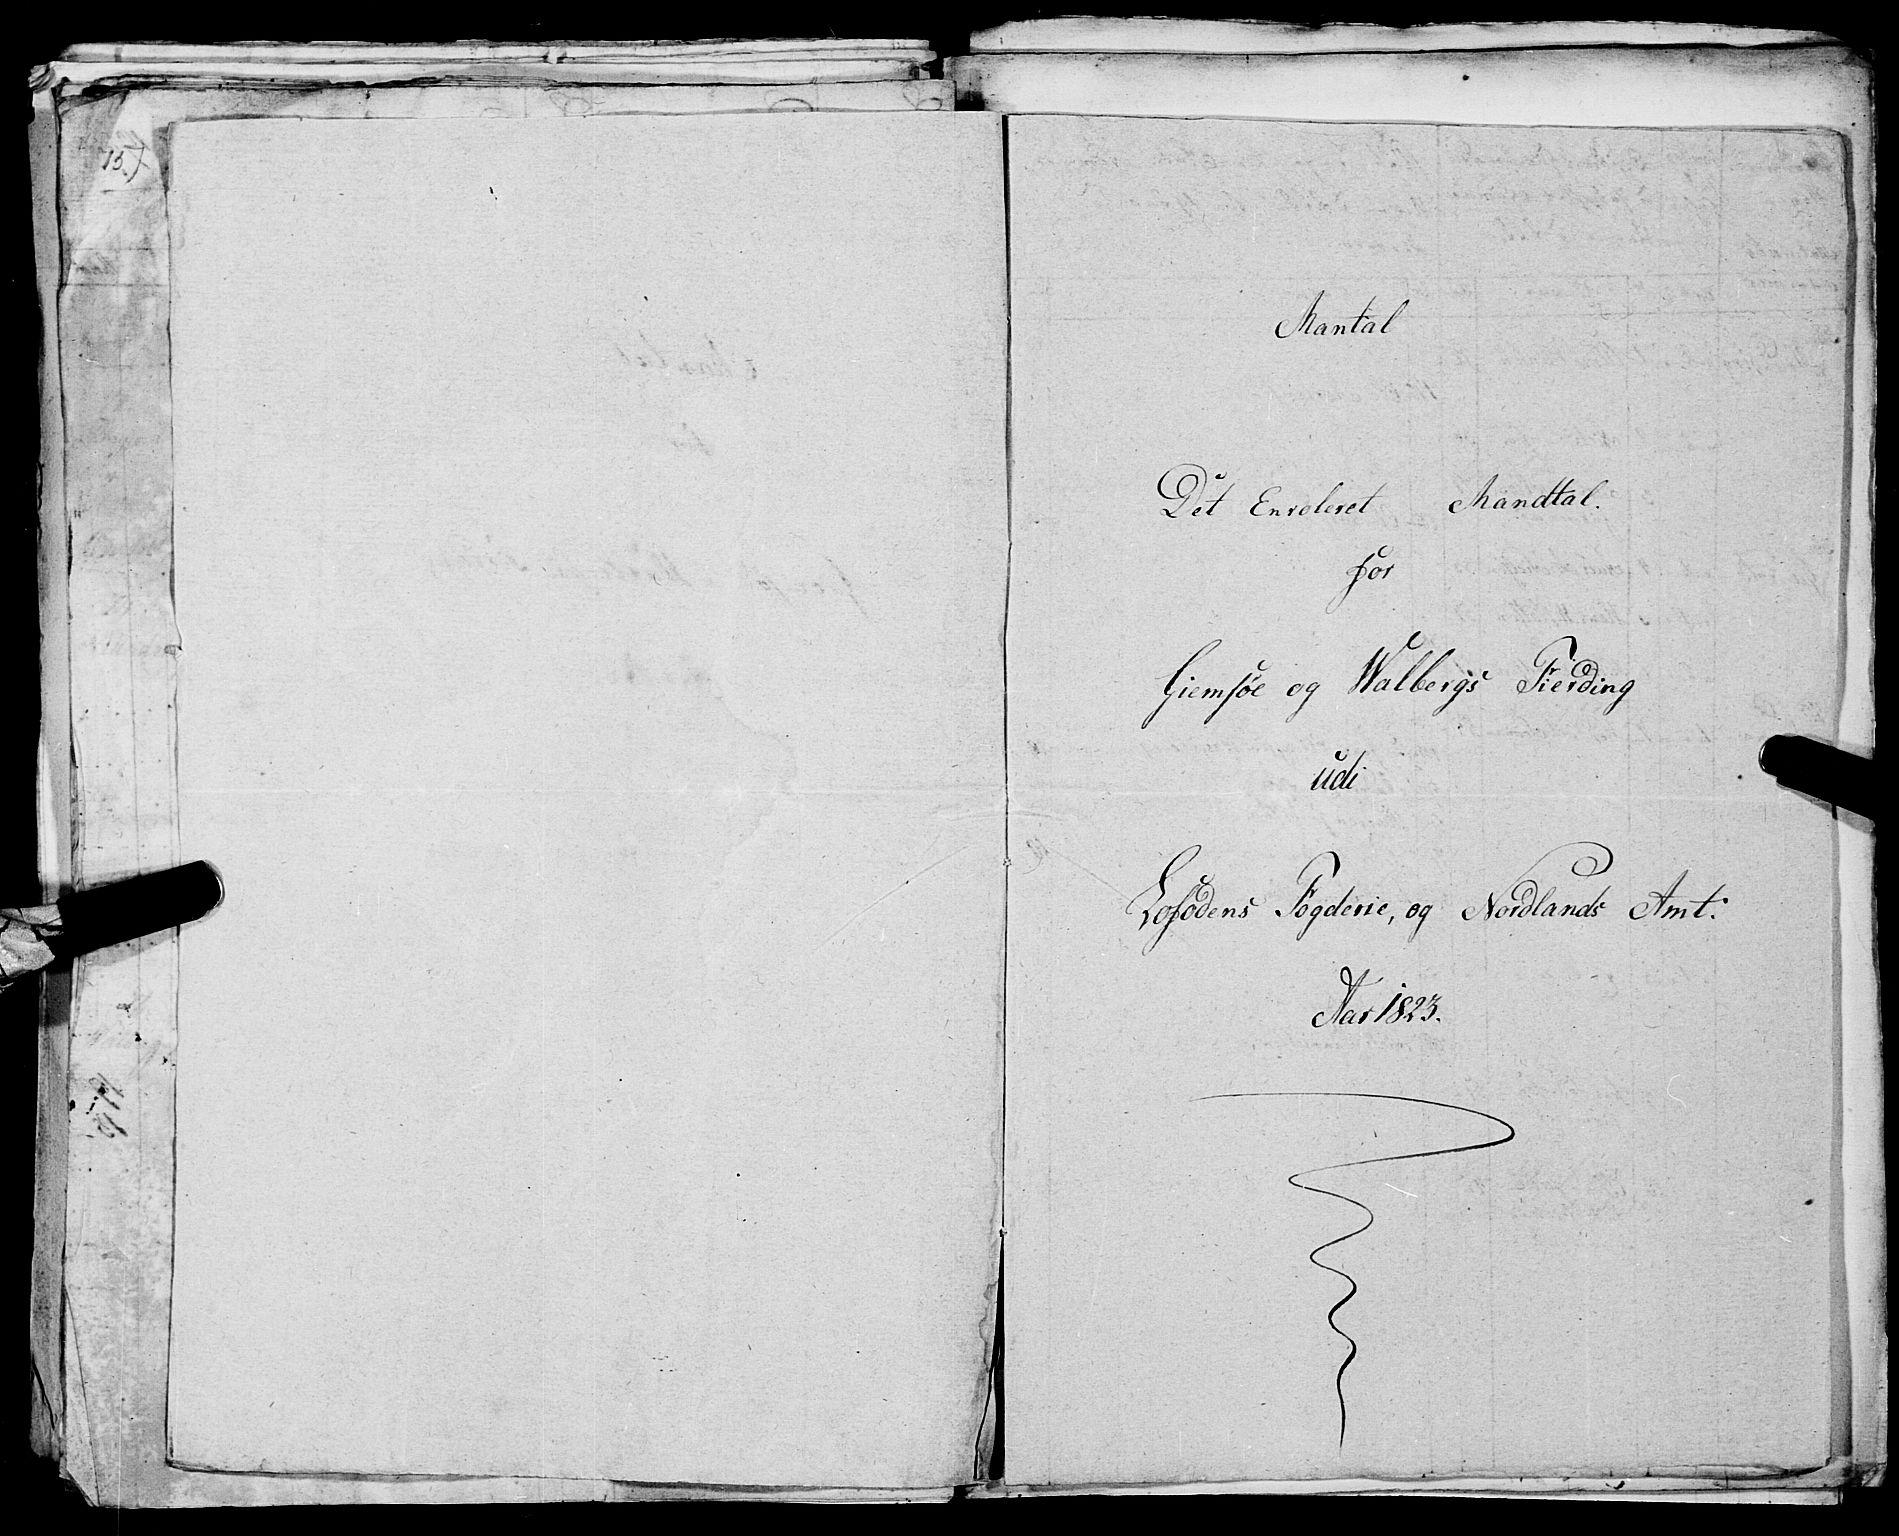 Mantal
Det Enroleret Mandtal.
for
Giemsøe og Walbergs Fierding
udi
Lofodens Fogderie, og Nordlands Amt:
Aar 1823.